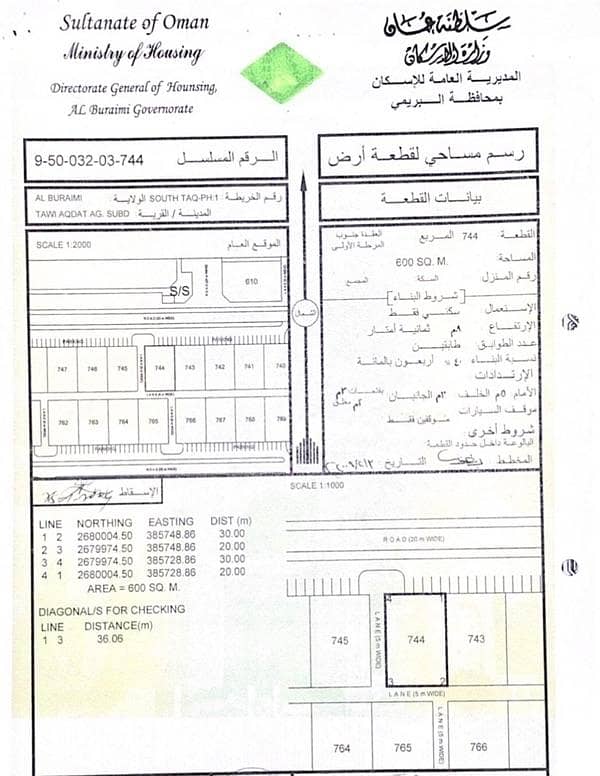 Sultanate of Oman
Ministry of Housing
Directorate General of Hounsing,
AL Buraimi Governorate
سلطنة عمان
وزارة الإسكان
المديرية العامة للإسكان
بمحافظة البريمي
9-50-032-03-744 الرقم المسلسل
رسم مساحي لقطعة أرض
AL BURAIMI الولاية SOUTH TAQ-PH:1 رقم الخريطة:
TAWI AQDAT AG. SUBD المدينة / القرية:
بيانات القطعة
SCALE 1:2000 الموقع العام
610
S/S
ROAD (20 m WIDE)
PARKING
747 746 745 744 743 742 741
LANE (5 m WIDE)
762 763 764 765 766 767 768
PARKING
الشمال
القطعة 744 المربع العقدة جنوب
المرحلة الأولى
المساحة 600 SQ. M.
رقم المنزل السكة المجمع
شروط البناء
الإستعمال سكني فقط
الإرتفاع ٩م ثمانية أمتار
عدد الطوابق طابقين
نسبة البناء ٤٠% أربعون بالمائة
الإرتدادات
الأمام ٥م الخلف ٣م الجانبان
موقف السيارات موقفين فقط
شروط أخرى
البالوعة داخل حدود القطعة
المخطط التاريخ
الإسقاط
SCALE 1:1000
LINE NORTHING EASTING DIST (m)
1 2 2680004.50 385748.86 30.00
2 3 2679974.50 385748.86 20.00
3 4 2679974.50 385728.86 30.00
4 1 2680004.50 385728.86 20.00
AREA = 600 SQ. M.
DIAGONAL/S FOR CHECKING
LINE DISTANCE(m)
1 3 36.06
ROAD (20 m WIDE)
4 1
745 LANE (5 m WIDE) 744 743
3 2
LANE (5 m WIDE)
LANE (5 m WIDE)
764 765 766